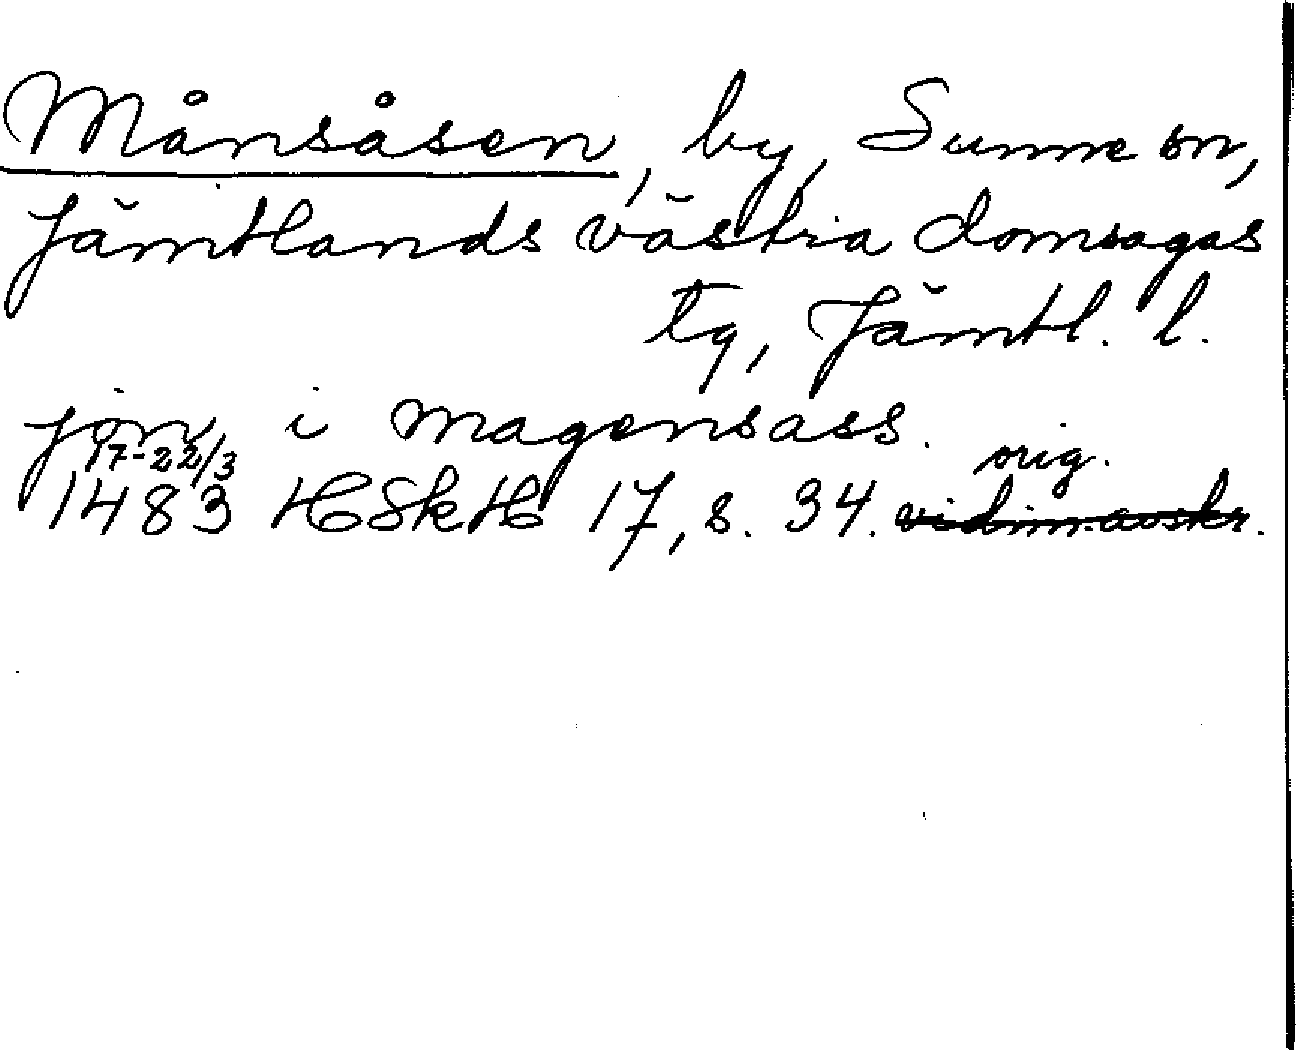 Månsåsen, by, Sunne sn,
Jämtlands västra domsagas
tg, Jämtl. l.
jön i magensass.
17-22/3 orig.
1483 HSkH 17, s. 34. vidim.avskr.